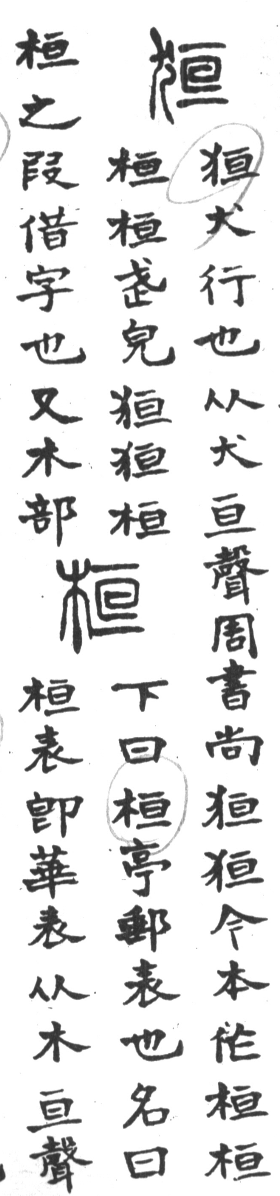 狟
狟犬行也从犬亘聲周書尚狟狟今本作桓桓
桓桓武皃狟狟桓
桓之叚借字也又木部
桓
下曰桓亭郵表也名曰
桓表即華表从木亘聲